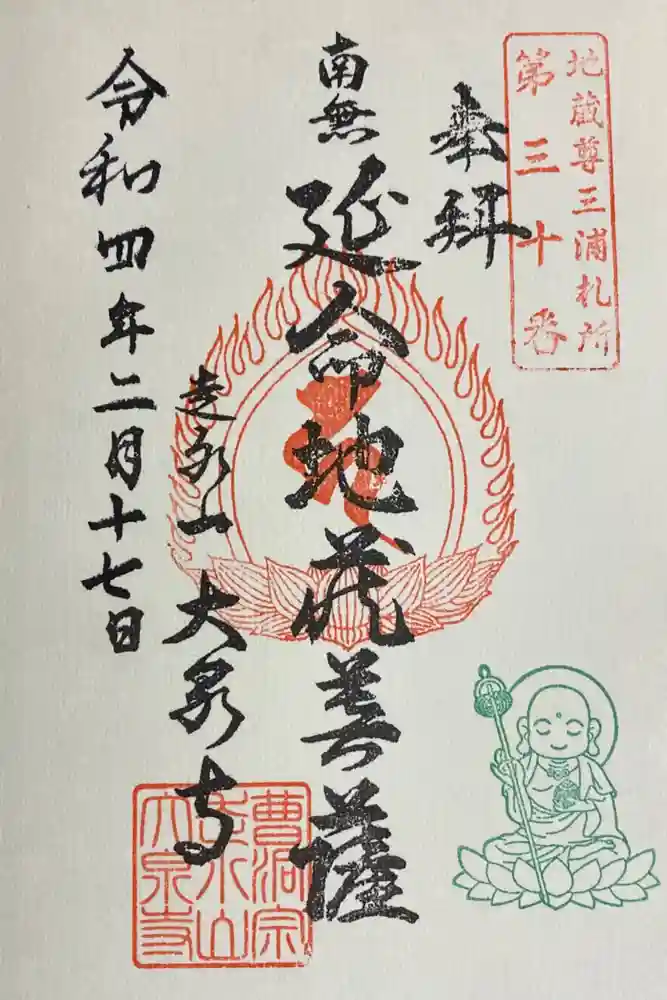 地蔵尊三浦札所
第三十番
奉拝
南無
延命地蔵菩薩
走水山 大泉寺
令和四年二月十七日
曹洞宗
走水山
大泉寺